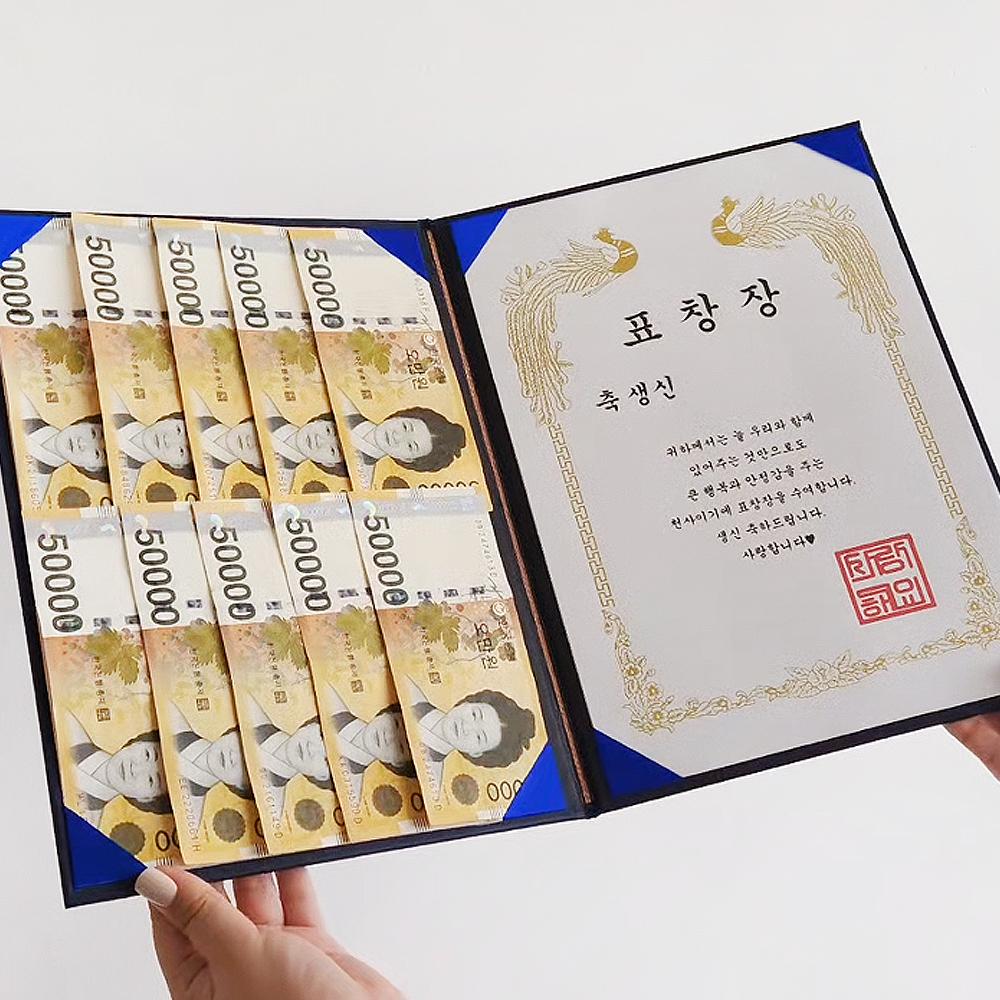 50000
50000
50000
50000
50000
오만원
50000
50000
50000
50000
50000
오만원
표창장
축 생신
귀하께서는 늘 우리와 함께
있어주는 것만으로도
큰 행복과 안정감을 주는
천사이기에 표창장을 수여합니다.
생신 축하드립니다.
사랑합니다♥
사랑
해요